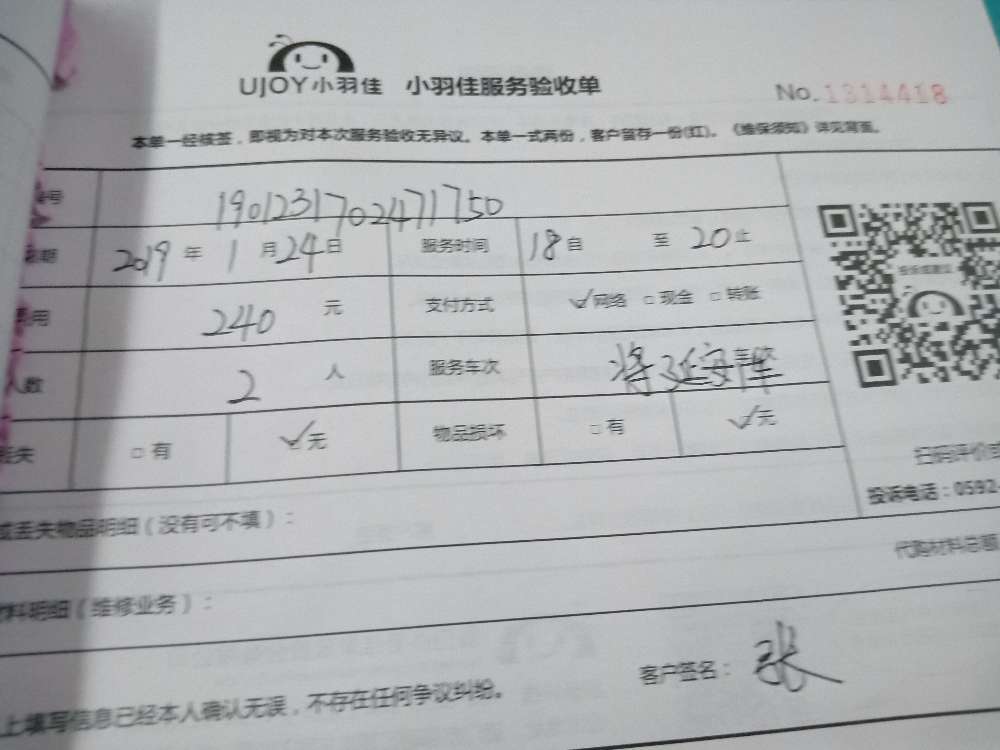 UJOY小羽佳 小羽佳服务验收单
No.1314418
本单一经核签，即视为对本次服务验收无异议。本单一式两份，客户留存一份(红)。《维保须知》详见背面。
号 1901231702471750
期 2019年1月24日 服务时间 18自 至20止
用 240 元 支付方式 ✓网络 □现金 □转账
人数 2 人 服务车次
丢失 □有 ✓无 物品损坏 □有 ✓无
扫码评价或
投诉电话：0592-
或丢失物品明细（没有可不填）：
代购材料总额
材料明细（维修业务）：
上填写信息已经本人确认无误，不存在任何争议纠纷。
客户签名：张